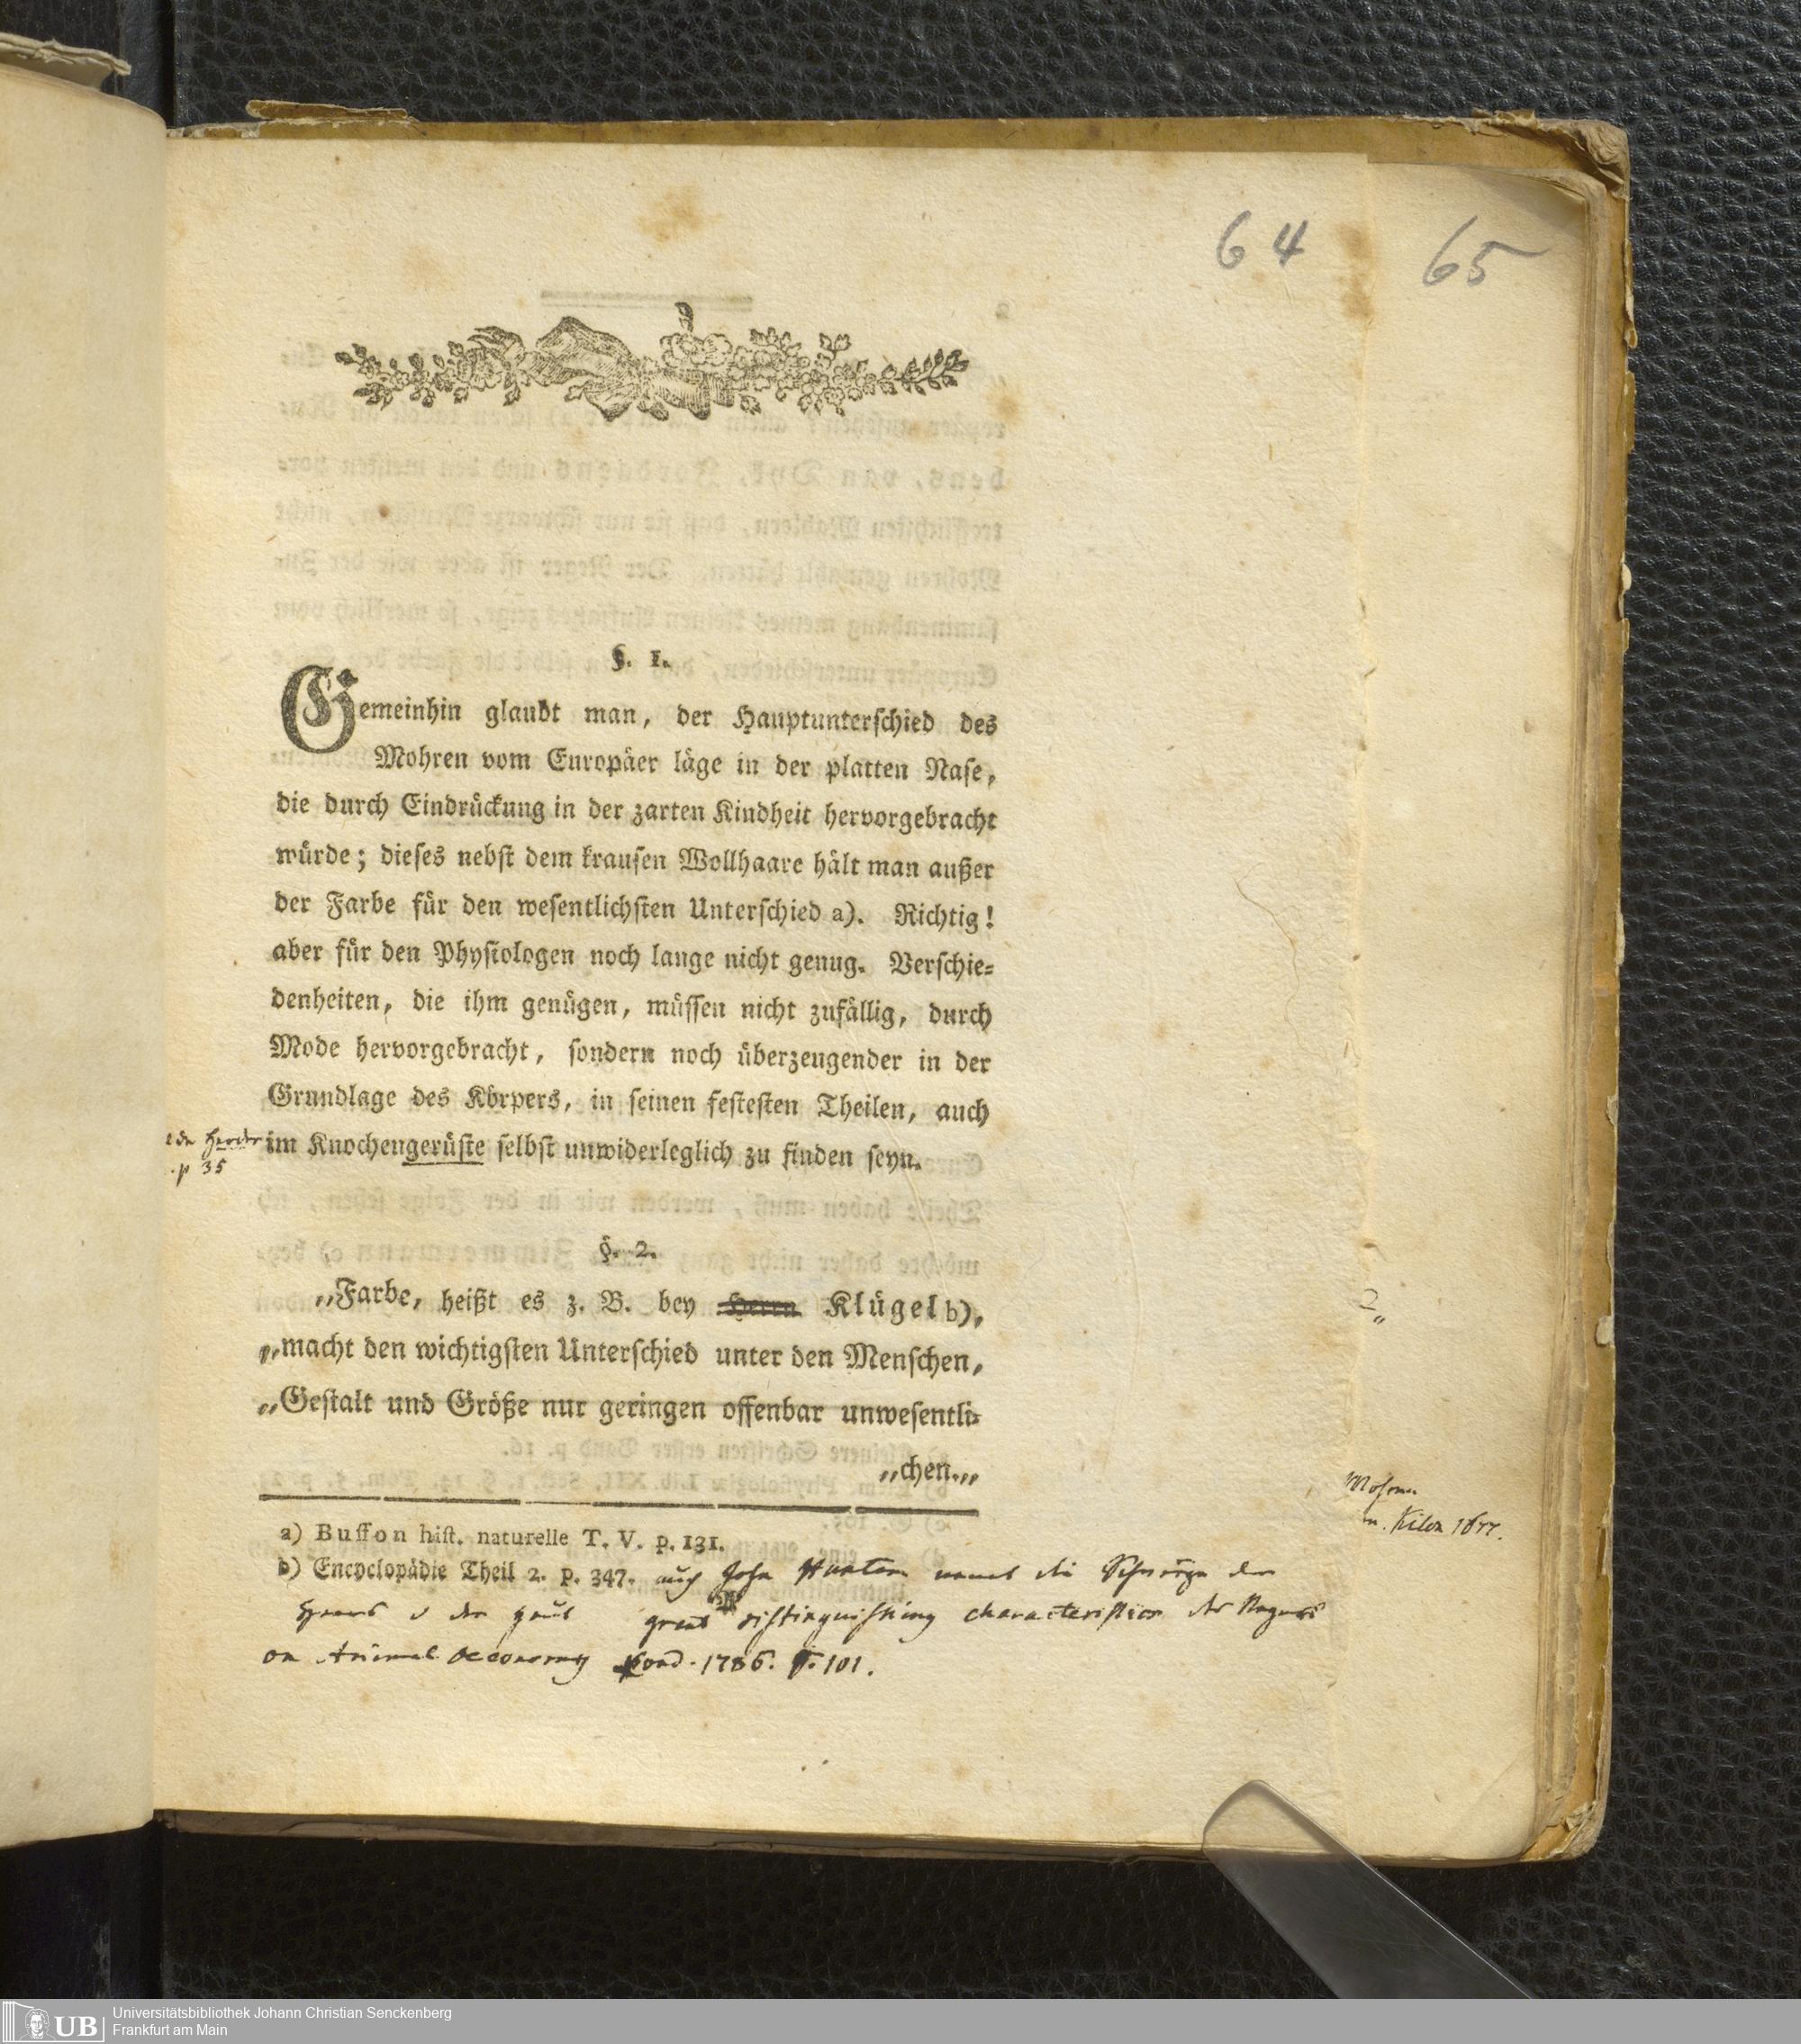 64
65
§. 1.
Gemeinhin glaubt man, der Hauptunterschied des
Mohren vom Europäer läge in der platten Nase,
die durch Eindrückung in der zarten Kindheit hervorgebracht
würde; dieses nebst dem krausen Wollhaare hält man außer
der Farbe für den wesentlichsten Unterschied a). Richtig!
aber für den Physiologen noch lange nicht genug. Verschie⸗
denheiten, die ihm genügen, müssen nicht zufällig, durch
Mode hervorgebracht, sondern noch überzeugender in der
Grundlage des Körpers, in seinen festesten Theilen, auch
Herder
p 35
im Knochengerüste selbst unwiderleglich zu finden seyn.
§. 2.
„Farbe, heißt es z. B. bey Herrn Klügel b),
„macht den wichtigsten Unterschied unter den Menschen,
„Gestalt und Größe nur geringen offenbar unwesentli⸗
„chen.„
a) Buffon hist. naturelle T. V. p. 131.
b) Encyclopädie Theil 2. p. 347. auch John Hunter nennt die Schwärze der
great distinguishing characteristics der Neger
on Animal Oeconomy Lond. 1786. p. 101.
Universitätsbibliothek Johann Christian Senckenberg
Frankfurt am Main
UB